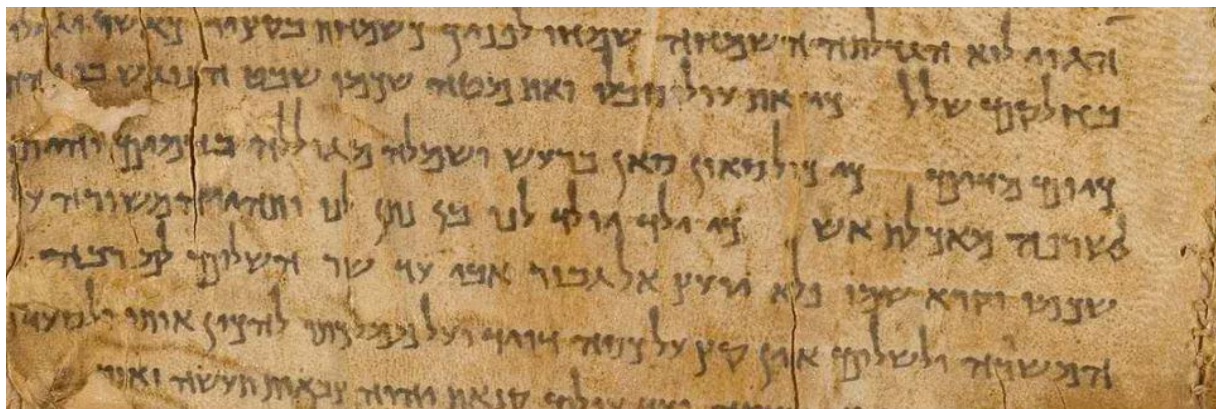 הגוי לוא הגדלתה השמחה שמחו לפניך כשמחת בקציר כאשר יגילו
בחלקם שלל כי את עול סבלו ואת מטה שכמו שבט הנוגש בו
כיום מדים כי כול סאון סאן ברעש ושמלה מגוללה בדמים והיתה
לשרפה מאכלת אש כי ילד יולד לנו בן נתן לנו ותהי המשורה על
שכמו וקרא שמו פלא יועץ אל גבור אבי עד שר השלום
המשרה ולשלום אין קץ על כסה דויד ועל ממלכתו להכין אותו
ועד עולם קנאת יהוה צבאות תעשה